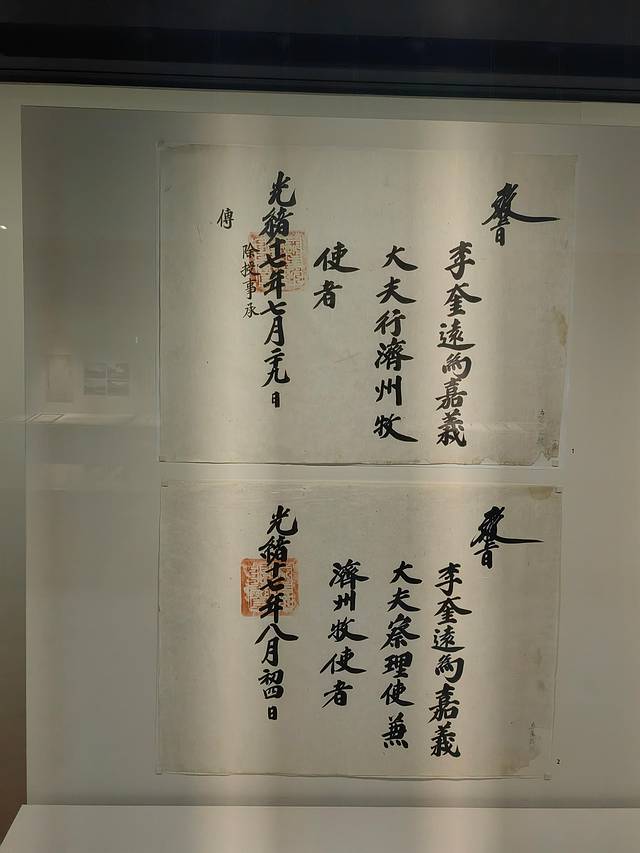 敎旨
李奎遠爲嘉義
大夫行濟州牧
使者
光緖十七年七月二十九日
除授事承
傳
1
敎旨
李奎遠爲嘉義
大夫察理使兼
濟州牧使者
光緖十七年八月初四日
2